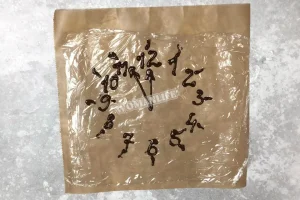 12
11 1
10 2
9 3
8 4
7 6 5